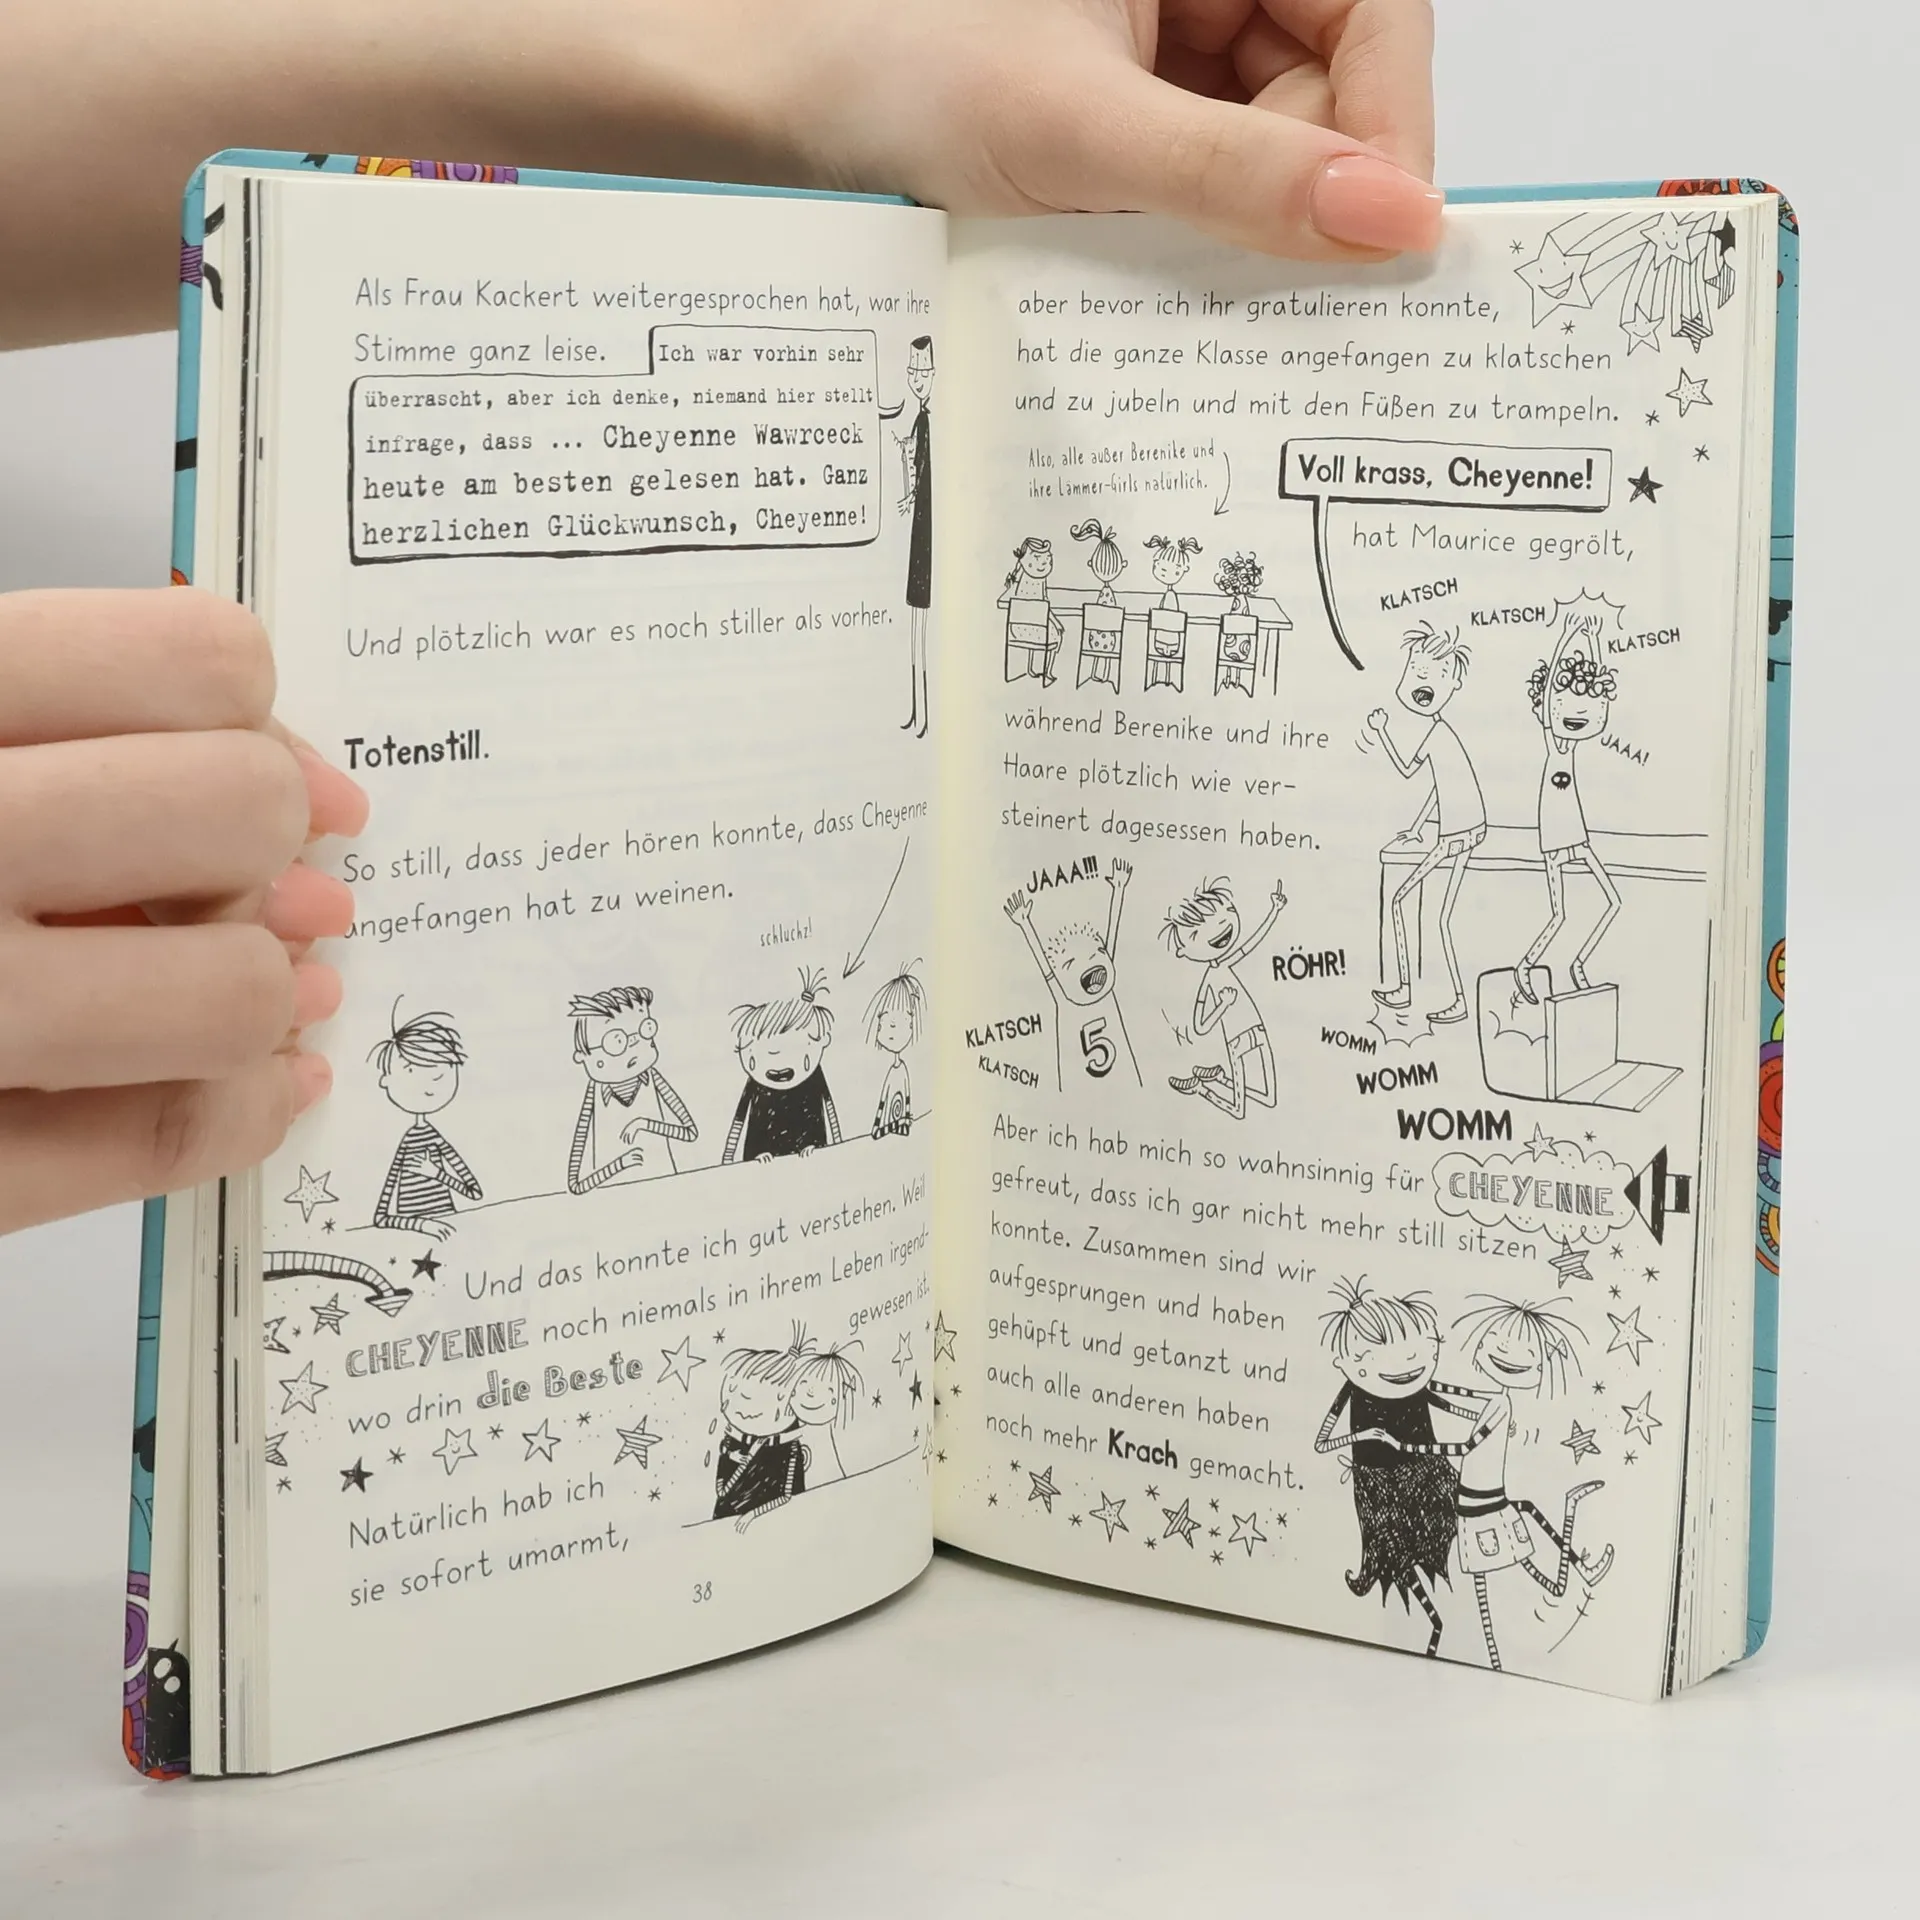 Als Frau Kackert weitergesprochen hat, war ihre
Stimme ganz leise.
Ich war vorhin sehr
überrascht, aber ich denke, niemand hier stellt
infrage, dass ... Cheyenne Wawrceck
heute am besten gelesen hat. Ganz
herzlichen Glückwunsch, Cheyenne!
Und plötzlich war es noch stiller als vorher.
Totenstill.
So still, dass jeder hören konnte, dass Cheyenne
angefangen hat zu weinen.
schluchz!
Und das konnte ich gut verstehen. Weil
CHEYENNE noch niemals in ihrem Leben irgend-
wo drin die Beste
gewesen ist.
Natürlich hab ich
sie sofort umarmt,
38
aber bevor ich ihr gratulieren konnte,
hat die ganze Klasse angefangen zu klatschen
und zu jubeln und mit den Füßen zu trampeln.
Also, alle außer Berenike und
ihre Lämmer-Girls natürlich.
Voll krass, Cheyenne!
hat Maurice gegrölt,
KLATSCH
KLATSCH
KLATSCH
JAAA!
während Berenike und ihre
Haare plötzlich wie ver-
steinert dagesessen haben.
JAAA!!!
RÖHR!
KLATSCH
KLATSCH
5
WOMM
WOMM
WOMM
Aber ich hab mich so wahnsinnig für CHEYENNE
gefreut, dass ich gar nicht mehr still sitzen
konnte. Zusammen sind wir
aufgesprungen und haben
gehüpft und getanzt und
auch alle anderen haben
noch mehr Krach gemacht.